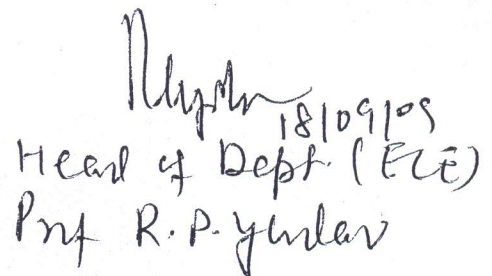 18/09/09
Head of Dept. (ECE)
Prof R. P. Yadav